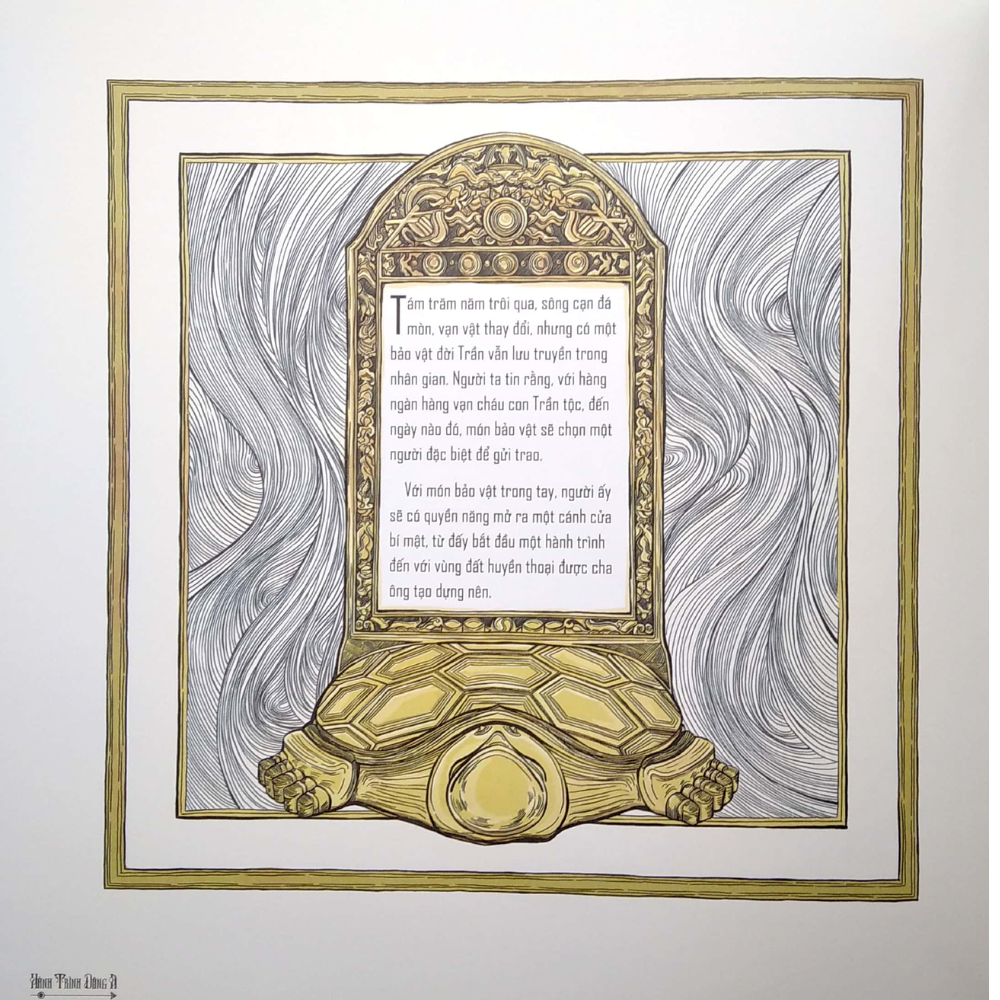 Tám trăm năm trôi qua, sông cạn đá
mòn, vạn vật thay đổi, nhưng có một
bảo vật đời Trần vẫn lưu truyền trong
nhân gian. Người ta tin rằng, với hàng
ngàn hàng vạn cháu con Trần tộc, đến
ngày nào đó, món bảo vật sẽ chọn một
người đặc biệt để gửi trao.
Với món bảo vật trong tay, người ấy
sẽ có quyền năng mở ra một cánh cửa
bí mật, từ đấy bắt đầu một hành trình
đến với vùng đất huyền thoại được cha
ông tạo dựng nên.
Hành Trình Đông A